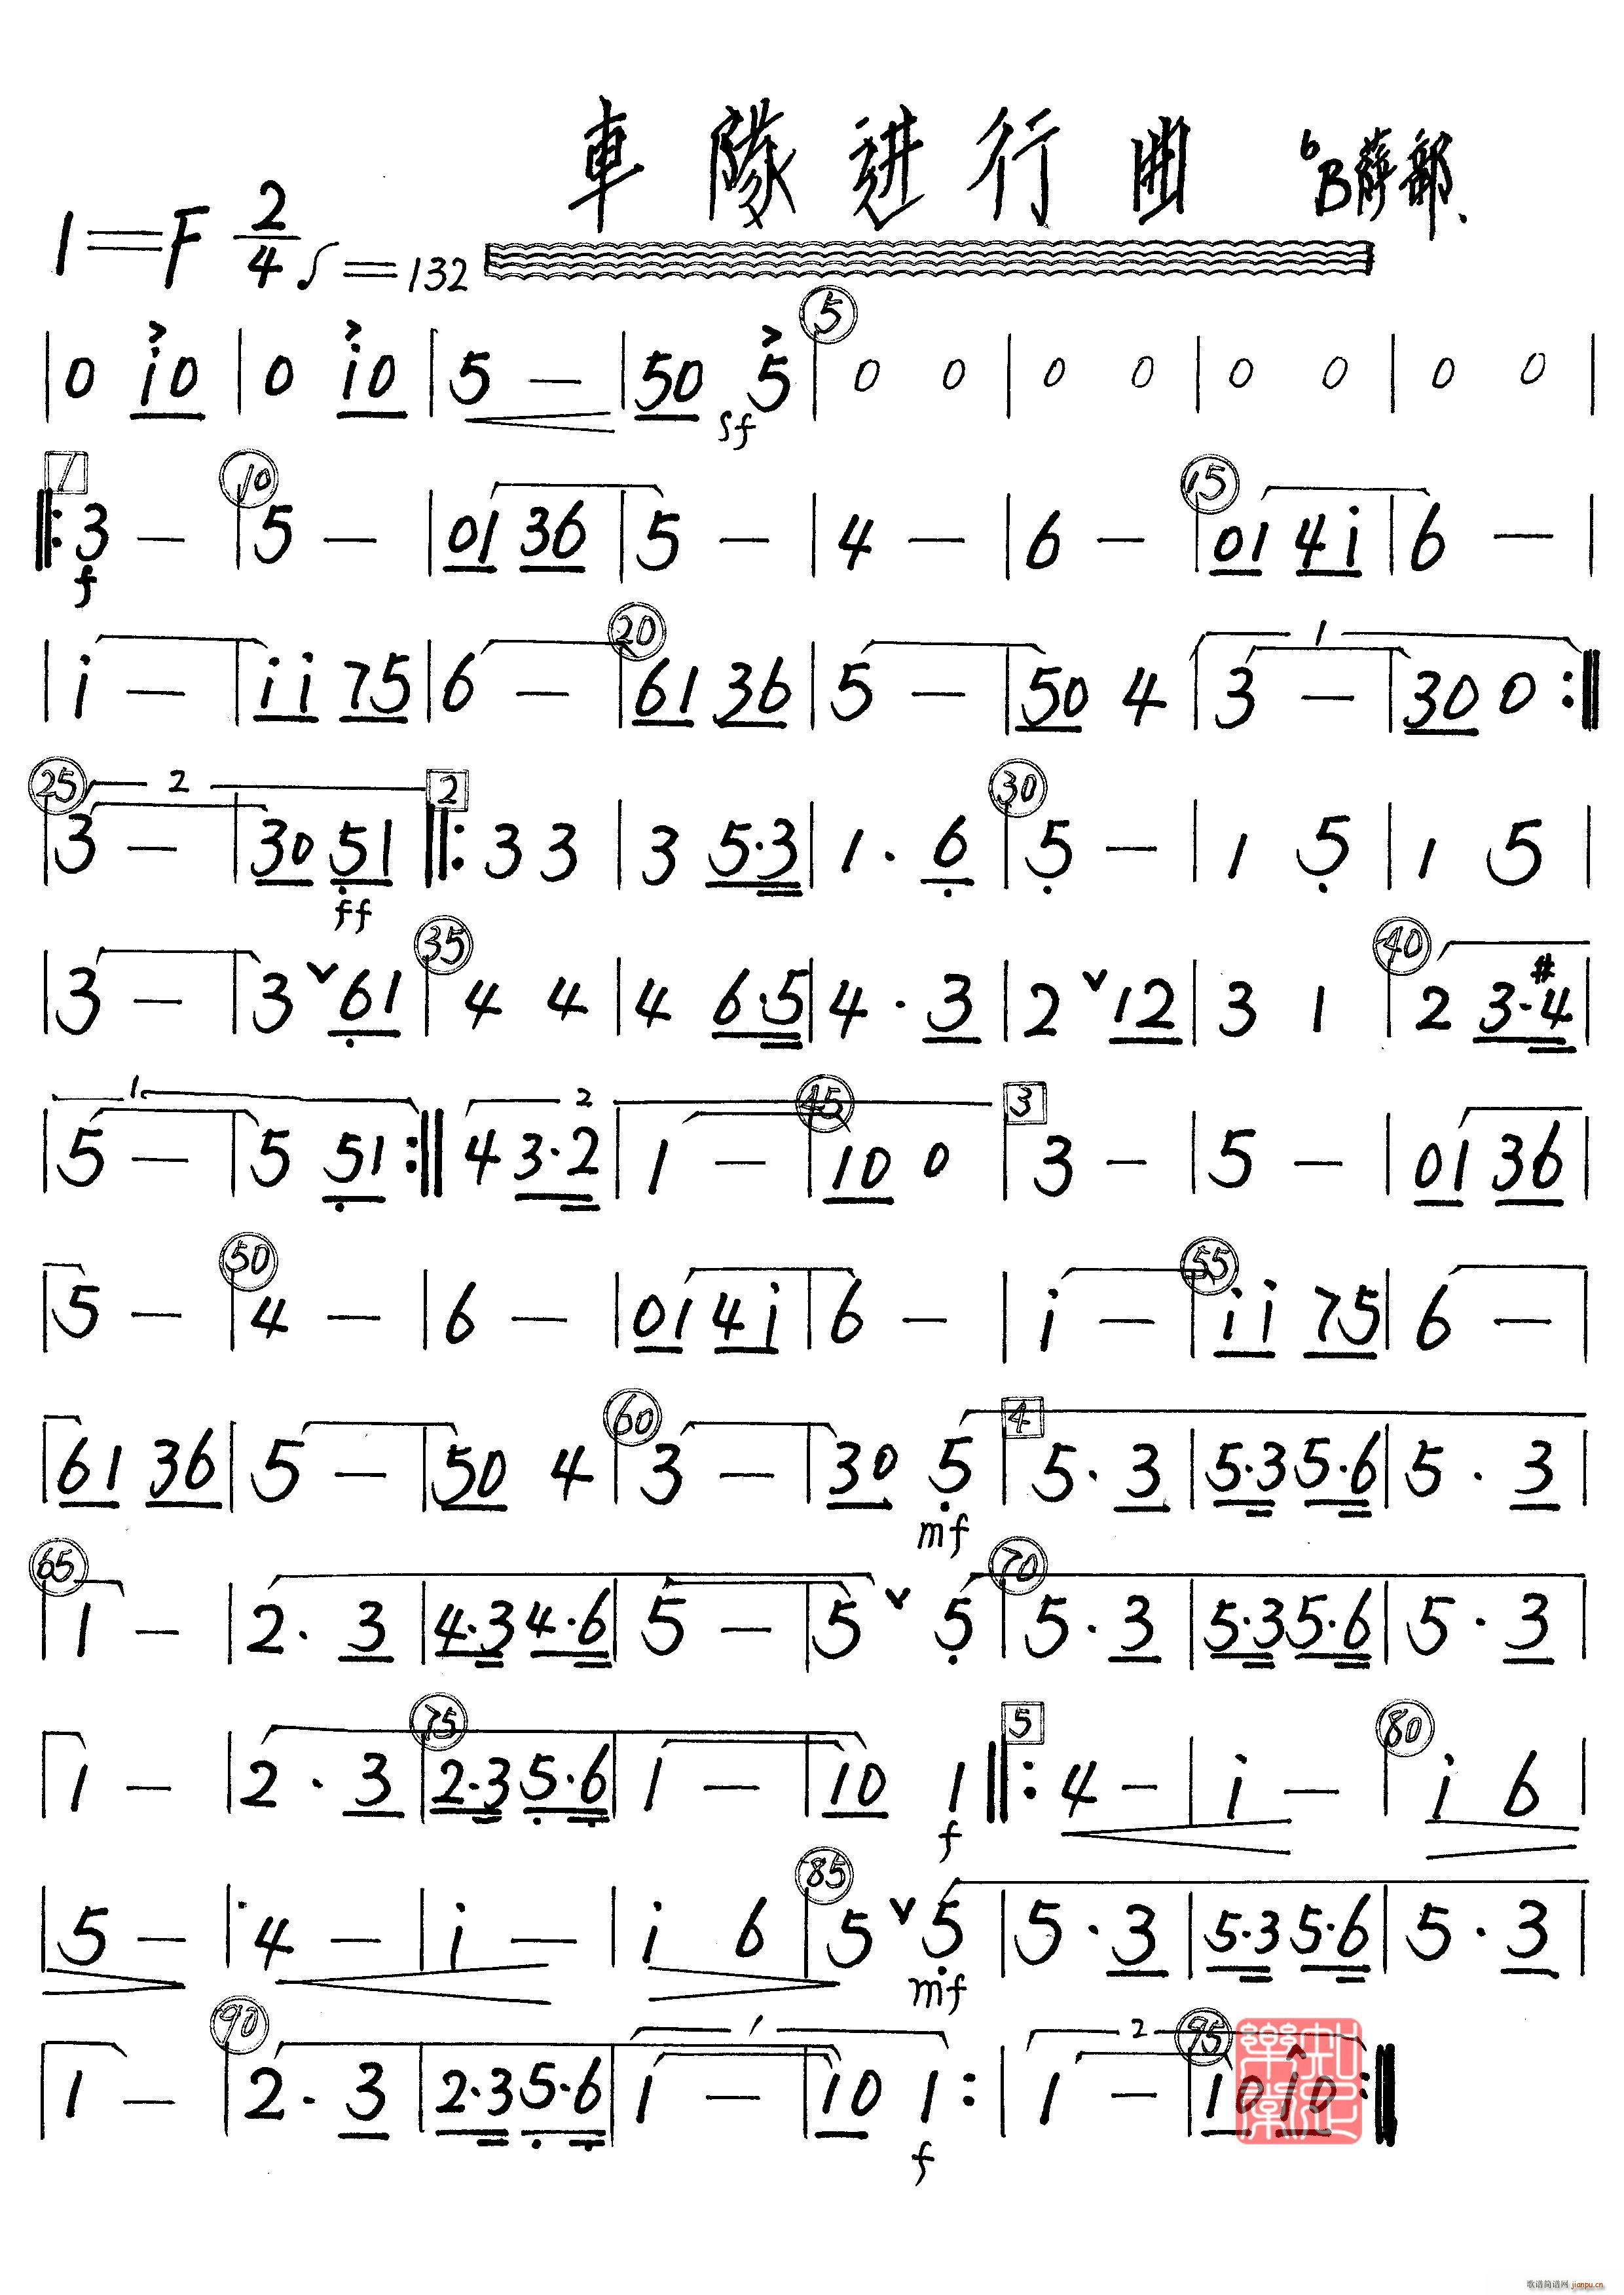 車隊进行曲 ♭B薛部、
1=F 2/4 ♪=132
| 0 i0 | 0 i0 | 5 - | 50 5 | ⑤ 0 0 | 0 0 | 0 0 | 0 0 |
sf
1 ⑩ ⑮
‖: 3 - | 5 - | 01 36 | 5 - | 4 - | 6 - | 01 4i | 6 - |
f
⑳ 1
| i - | ii 75 | 6 - | 61 36 | 5 - | 50 4 | 3 - | 30 0 :‖
25 2 2 30
| 3 - | 30 51 ‖: 33 | 3 5·3 | 1· 6 | 5 - | 1 5 | 1 5 |
ff
35 40
| 3 - | 3 ∨ 61 | 4 4 | 4 6·5 | 4· 3 | 2 ∨ 12 | 3 1 | 2 3·#4 |
1 2 45 3
| 5 - | 5 51 :‖ 4 3·2 | 1 - | 10 0 | 3 - | 5 - | 01 36 |
50 55
| 5 - | 4 - | 6 - | 01 4i | 6 - | i - | ii 75 | 6 - |
60 4
| 61 36 | 5 - | 50 4 | 3 - | 30 5 | 5· 3 | 5·3 5·6 | 5· 3 |
mf
65 70
| 1 - | 2· 3 | 4·3 4·6 | 5 - | 5 ∨ 5 | 5· 3 | 5·3 5·6 | 5· 3 |
75 5 80
| 1 - | 2· 3 | 2·3 5·6 | 1 - | 10 1 ‖: 4 - | i - | i 6 |
f
85
| 5 - | 4 - | i - | i 6 | 5 ∨ 5 | 5· 3 | 5·3 5·6 | 5· 3 |
mf
90 1 2 95
| 1 - | 2· 3 | 2·3 5·6 | 1 - | 10 1 : | 1 - | 10 i0 :‖
f
歌谱简谱网
jianpu.cn